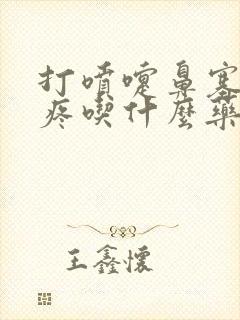 打噴嚏鼻塞
疼喫什麼藥
王鑫懷